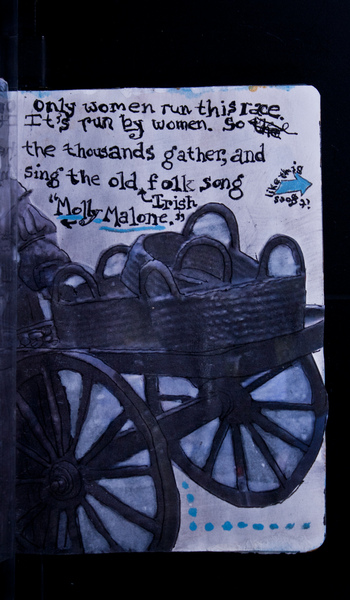 only women run this race.
It's run by women. So
the thousands gather, and
sing the old folk song
Irish
"Molly Malone."
like this
it goes